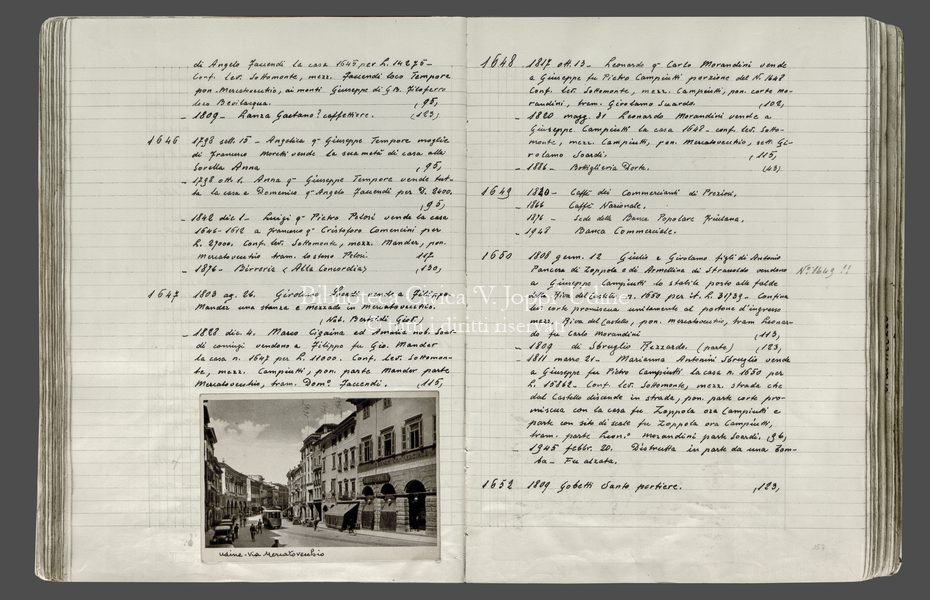 di Angelo Faccendi la casa 1645 per L. 14275 -
Conf. lev. Sottomonte, mezz. Faccendi loco Tempore
pon. Mercatovecchio, ai monti Giuseppe di G.B. Filaferro
loco Bevilacqua. (95)
- 1809 - Lanza Gaetano? caffettiere. (123)
1646 1798 sett. 15 - Angelica qm Giuseppe Tempore moglie
di Francesco Moretti vende la sua metà di casa alla
sorella Anna (95)
- 1798 ott. 1. Anna qm Giuseppe Tempore vende tut-
ta la casa a Domenico qm Angelo Faccendi per D. 2400.
(95)
- 1842 dic 1 - Luigi qm Pietro Pelosi vende la casa
1646-1612 a Francesco qm Cristoforo Comencini per
L. 27000. Conf. lev. Sottomonte, mezz. Mander, pon.
Mercatovecchio tram. lo stesso Pelosi 117
- 1876 - Birreria (Alla Concordia) (130)
1647 1803 ag. 26. Girolamo Soardi vende a Filippo
Mander una stanza e mezzado in mercatovecchio.
(Not. Bertoldi Giov.)
- 1828 dic. 4. Marco Cigaina ed Amalia nob. Soar-
di coniugi vendono a Filippo fu Gio. Mander
la casa n. 1647 per L. 11000. Conf. lev. Sottomon-
te, mezz. Campiutti, pon. parte Mander parte
Mercatovecchio, tram. Dom.o Faccendi. (115)
Udine - Via Mercatovecchio
1648 1817 ott. 13 - Leonardo qm Carlo Morandini vende
a Giuseppe fu Pietro Campiutti porzione del N. 1648
Conf. lev. Sottomonte, mezz. Campiutti, pon. corte Mo-
randini, tram. Girolamo Suardo. (102)
- 1820 magg. 31 Leonardo Morandini vende a
Giuseppe Campiutti la casa 1648 - conf. lev. Sotto-
monte, mezz. Campiutti, pon. Mercatovecchio, sett. Gi-
rolamo Soardi. (115)
- 1886 - Bottiglieria Dorta. (43)
1649 1820 - Caffè dei Commercianti di Preziosi.
- 1866 Caffè Nazionale.
1876 - Sede della Banca Popolare Friulana.
- 1948 Banca Commerciale.
1650 1808 genn. 12 Giulio e Girolamo figli di Antonio
Pancera di Zoppola e di Armellina di Strasoldo vendono
a Giuseppe Campiutti lo stabile posto alle falde
della Riva del Castello n. 1650 per it. L. 3173 - Confina
lev. corte promiscua unitamente al portone d'ingresso
mezz. Riva del Castello, pon. mercatovecchio, tram Leonar-
do fu Carlo Morandini (113)
- 1809 di Sbruglio Rizzardo. (parte) (123)
- 1811 marzo 21 - Marianna Antonini Sbruglio vende
a Giuseppe fu Pietro Campiutti la casa n. 1650 per
L. 15862 - Conf. lev. Sottomonte, mezz. strada che
dal Castello discende in strada, pon. parte corte pro-
miscua con la casa fu Zoppola ora Campiutti e
parte con sito di scale fu Zoppola ora Campiutti,
tram. parte Leon.o Morandini parte Soardi. (96)
- 1945 febbr. 20. Distrutta in parte da una bom-
ba - Fu alzata.
1652 1809 Gobetti Santo portiere. (123)
N° 1649 !!
Biblioteca Civica 'V. Joppi' Udine
© tutti i diritti riservati